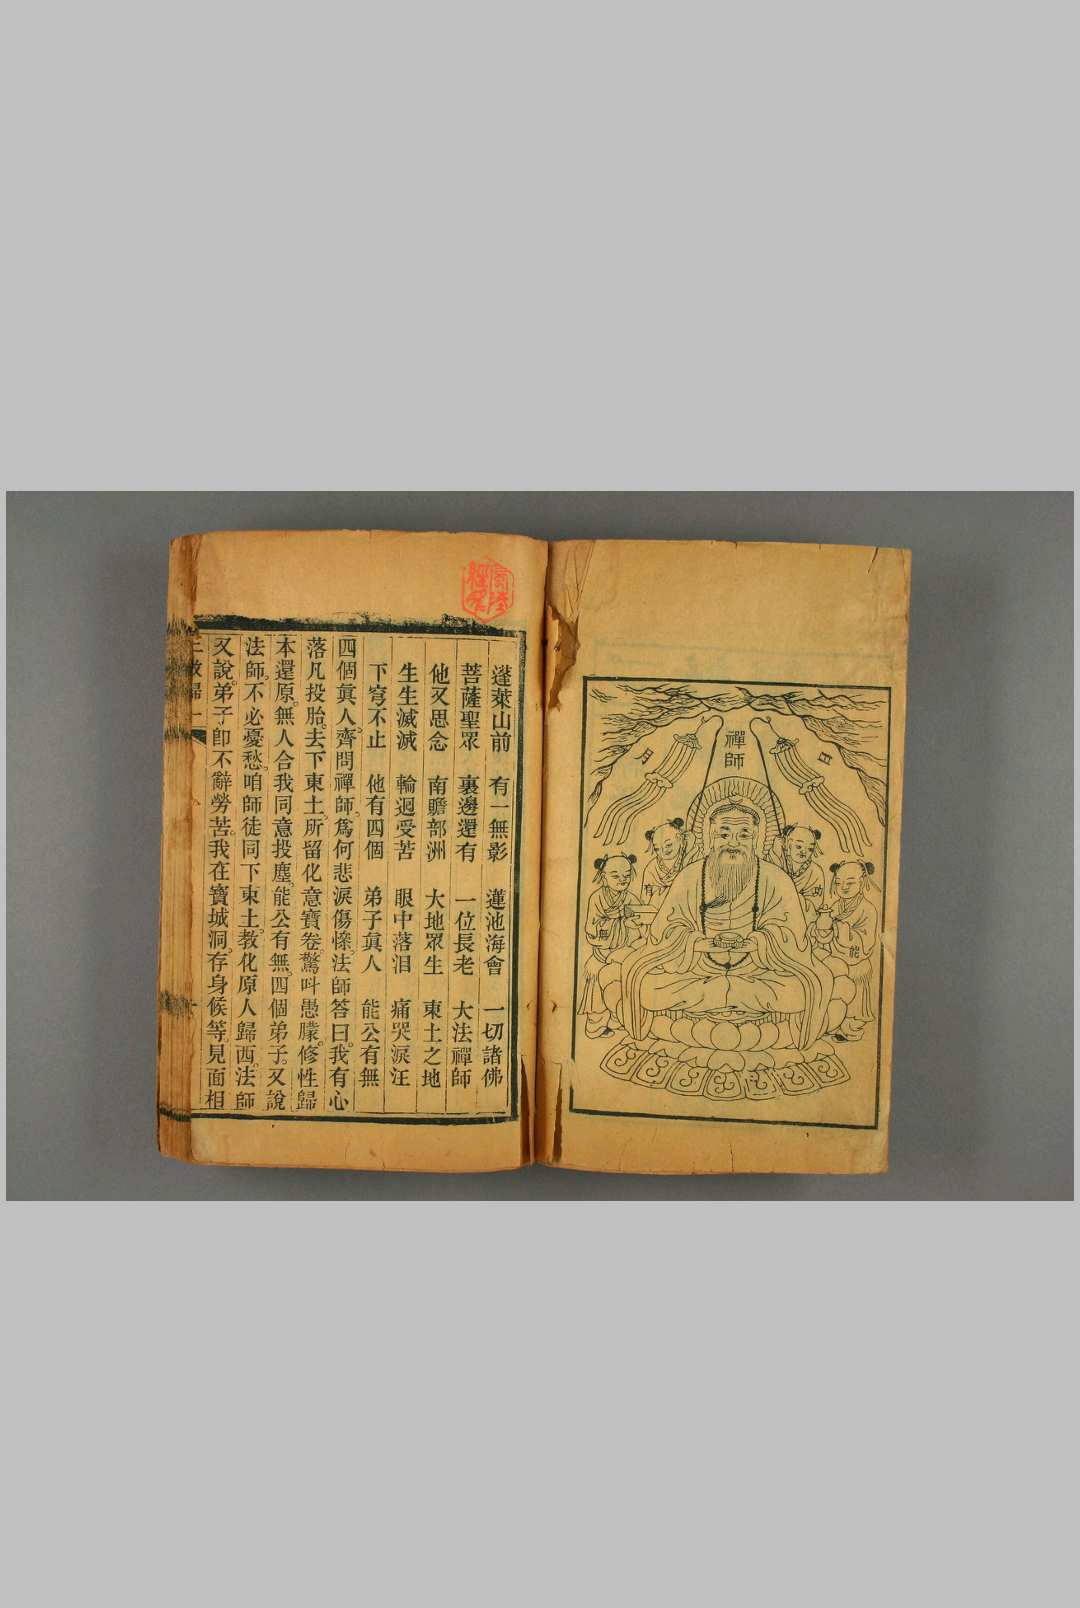 禪師
日
月
功
有
能
無
蓬萊山前 有一無影 蓮池海會 一切諸佛
菩薩聖眾 裏邊還有 一位長老 大法禪師
他又思念 南贍部洲 大地眾生 東土之地
生生滅滅 輪迴受苦 眼中落泪 痛哭淚汪
下穹不止 他有四個 弟子眞人 能公有無
四個眞人。齊問禪師。爲何悲淚傷慘。法師答曰。我有心
落凡投胎。去下東土。所留化意寶卷驚呌愚朦。修性歸
本還原。無人合我同意投塵。能公有無。四個弟子。又說
法師。不必憂愁。咱師徒同下東土。教化原人歸西。法師
又說。弟子卽不辭勞苦。我在寶城洞。存身候等。見面相